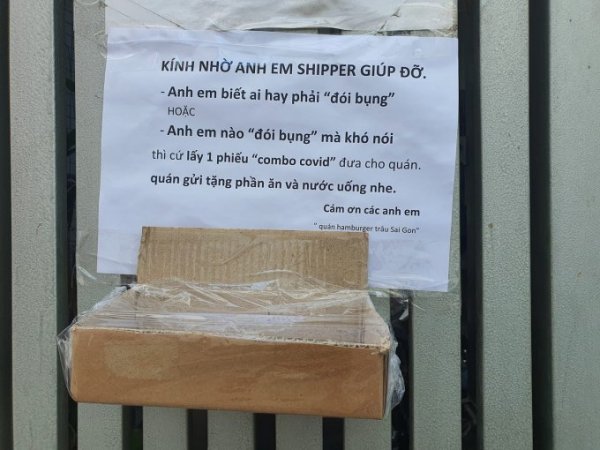 KÍNH NHỜ ANH EM SHIPPER GIÚP ĐỠ.
- Anh em biết ai hay phải “đói bụng”
HOẶC
- Anh em nào “đói bụng” mà khó nói
thì cứ lấy 1 phiếu “combo covid” đưa cho quán.
quán gửi tặng phần ăn và nước uống nhe.
Cám ơn các anh em
" quán hamburger trâu Sai Gon"